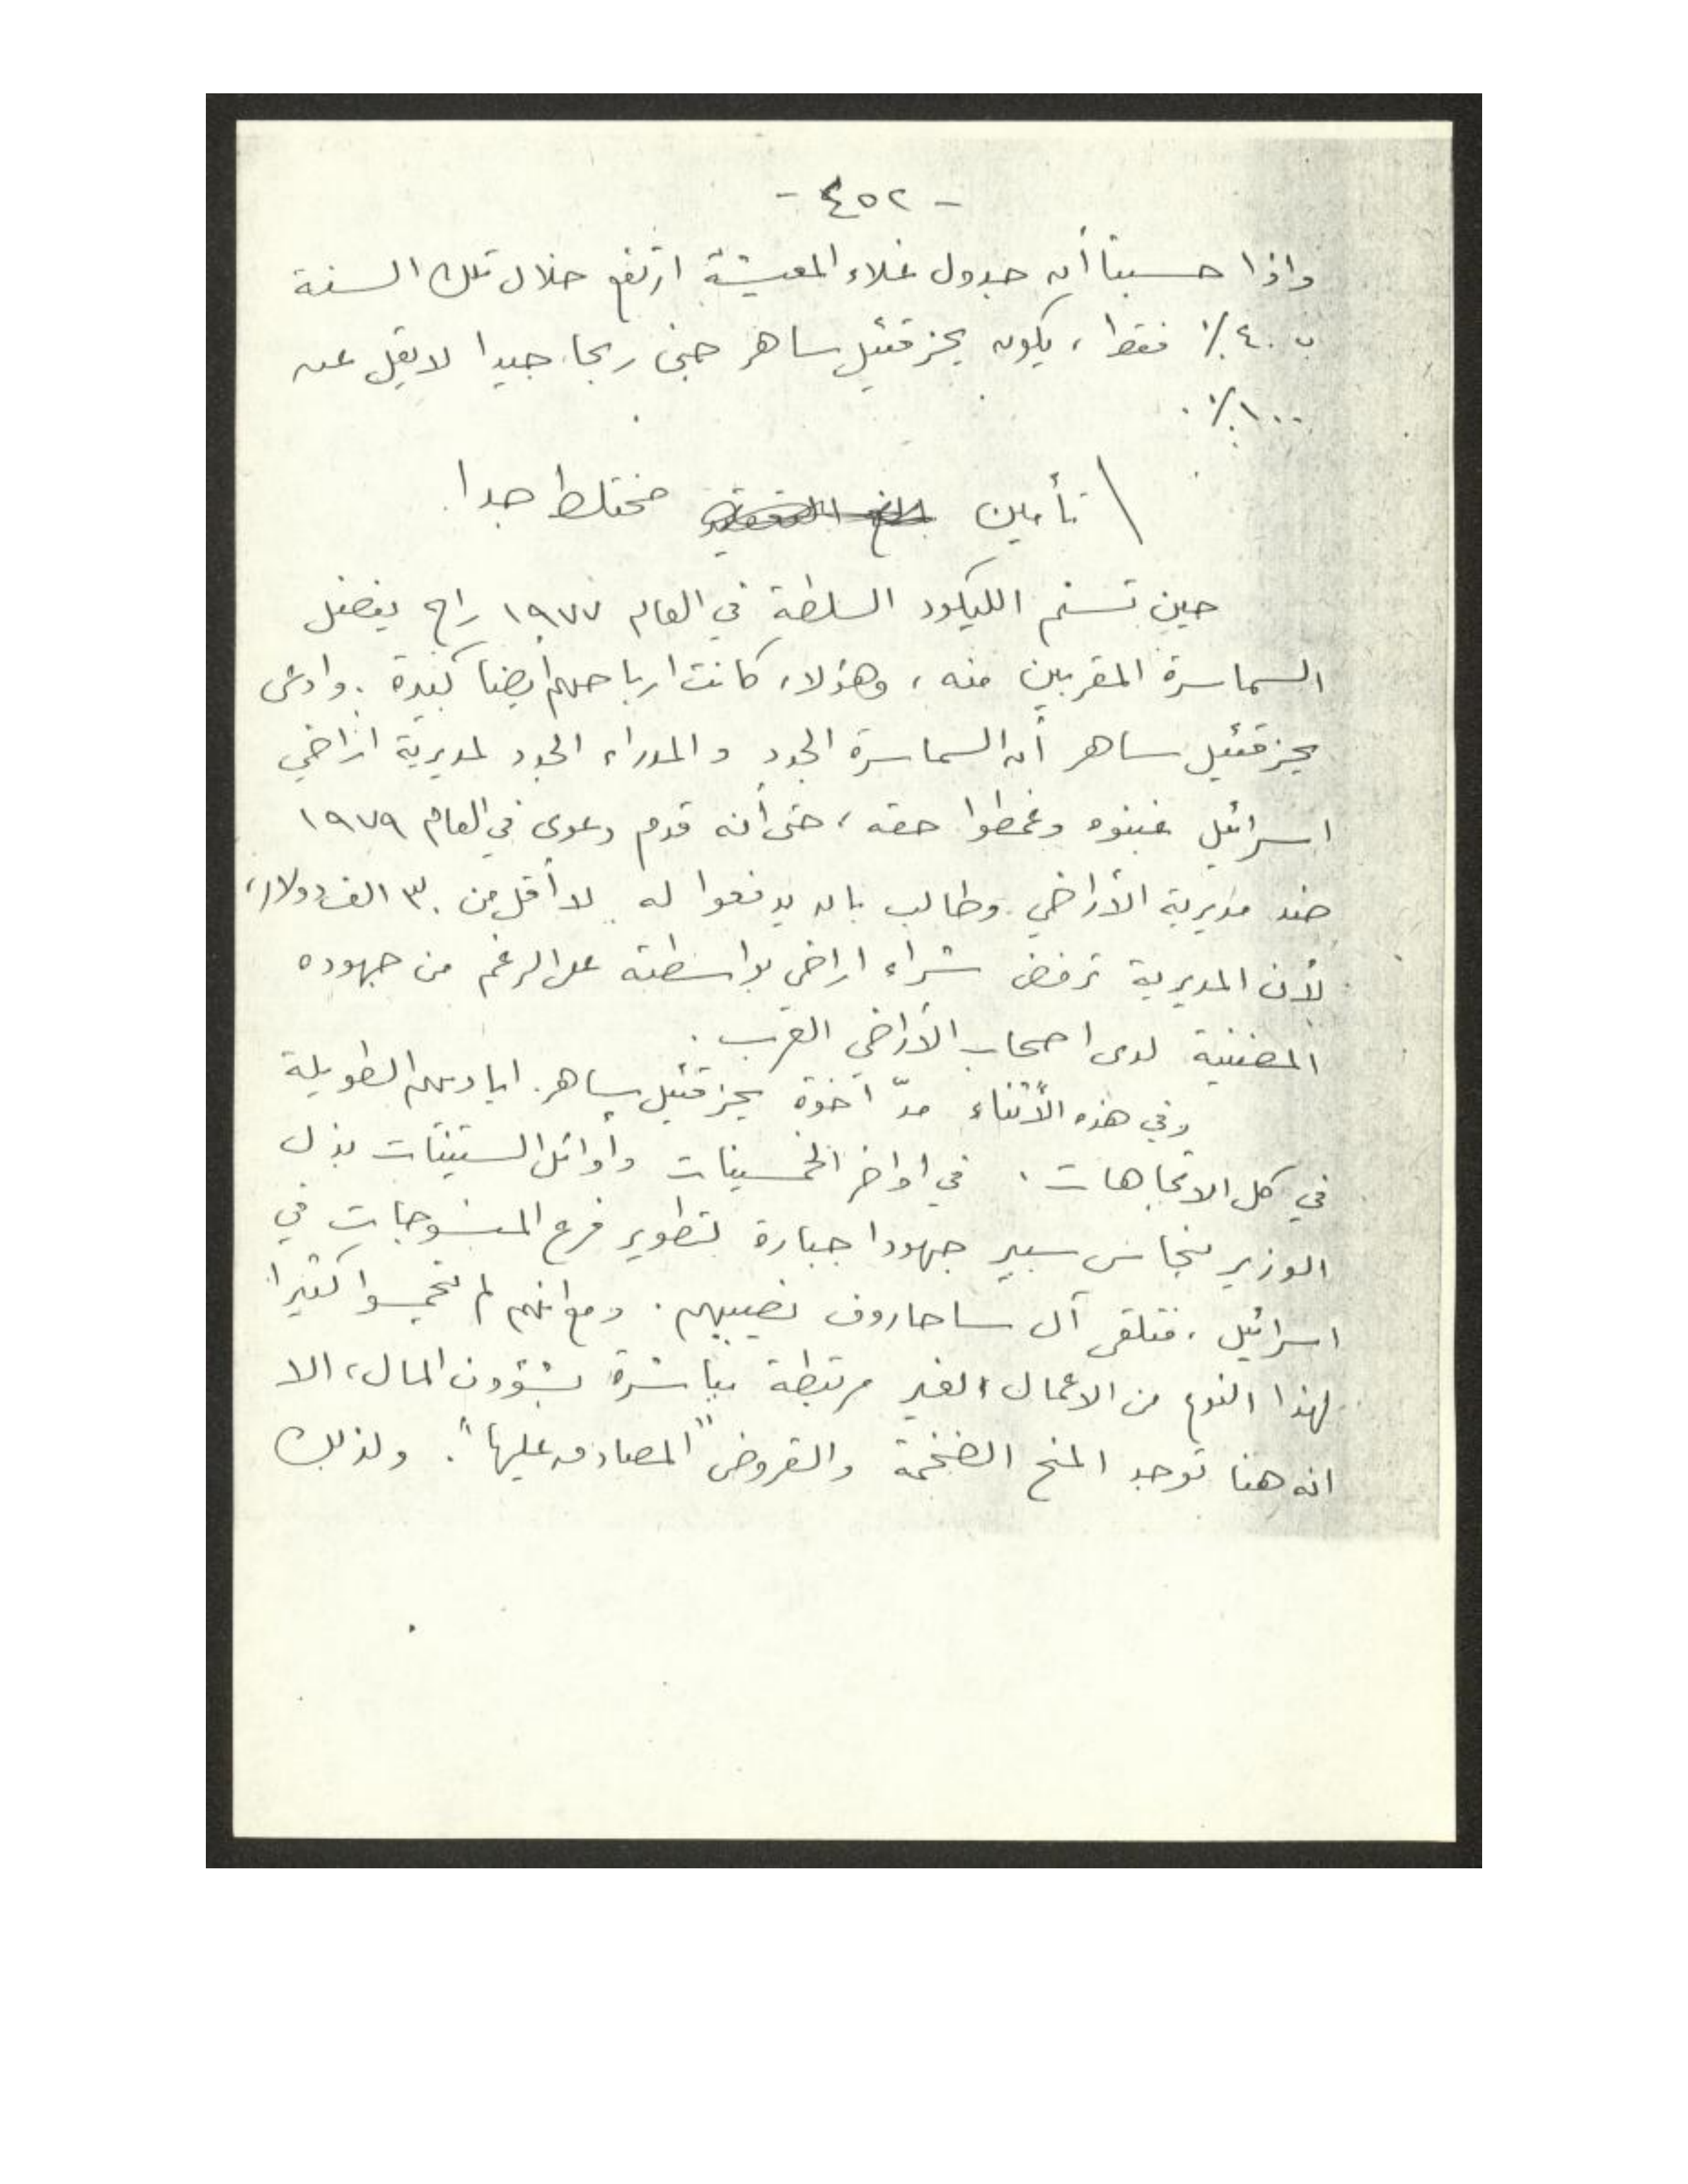 - ٤٥٢ -
واذا حسبنا أن جدول غلاء المعيشة ارتفع خلال تلك السنة
ب ٤٠٪ فقط، يكون يحزقئيل ساهر جنى ربحا جيدا لا يقل عن
١٠٠٪.
تأمين مختلط جدا
حين تسنم الليكود السلطة في العام ١٩٧٧ راح يفضل
السماسرة المقربين منه، وهؤلاء كانت ارباحهم أيضا كبيرة. وادعى
يحزقئيل ساهر أن السماسرة الجدد والمدراء الجدد لمديرية اراضي
اسرائيل غبنوه وغمطوا حقه، حتى أنه قدم دعوى في العام ١٩٧٩
ضد مديرية الأراضي وطالب بان يدفعوا له لا أقل من ٣٠ الف دولار،
لأن المديرية ترفض شراء اراضي بواسطته على الرغم من جهوده
المضنية لدى اصحاب الأراضي العرب.
وفي هذه الأثناء مدّ أخوة يحزقئيل ساهر اياديهم الطويلة
في كل الاتجاهات. في اواخر الخمسينات وأوائل الستينات بذل
الوزير بنحاس سبير جهودا جبارة لتطوير فرع المنسوجات في
اسرائيل، فتلقى آل ساحاروف نصيبهم. ومع انهم لم يتحمسوا كثيرا
لهذا النوع من الاعمال الغير مرتبطة مباشرة بشؤون المال، الا
انه هنا توجد المنح الضخمة والقروض "المصادق عليها". ولذلك